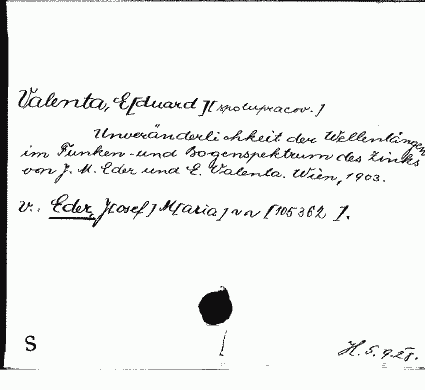 Valenta, E[duard] [spolupracov.]
Unveränderlichkeit der Wellenlängen
im Funken- und Bogenspektrum des Zinks
von J. M. Eder und E. Valenta. Wien, 1903.
v.: Eder, J[osef] M[aria] [105362].
S
H. 5.9.28.